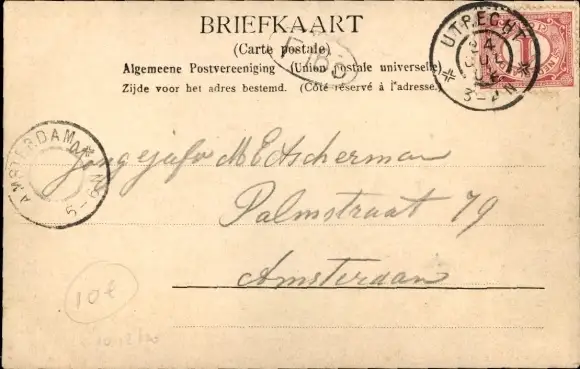 BRIEFKAART
(Carte postale)
Algemeene Postvereeniging (Union postale universelle)
Zijde voor het adres bestemd. (Côté réservé à l'adresse.)
UTRECHT
3-4 N
1
AMSTERDAM
5-6 N
Palmstraat 79
Amsterdam
10€